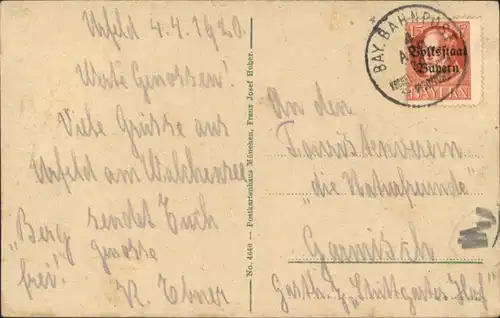 Urfeld 4.4.1920.
Werte Genossen!
Viele Grüsse aus
Urfeld am Walchensee
sendet Euch
"Berg Genosse
frei!"
R. Ebner
No. 4640 — Postkartenhaus München, Franz Josef Huber.
BAY. BAHNPOST
4
APR
Volksstaat
Bayern
BAYERN
An den
Touristenverein
"die Naturfreunde"
Garmisch
Gasth. z. "Stuttgarter Hof"